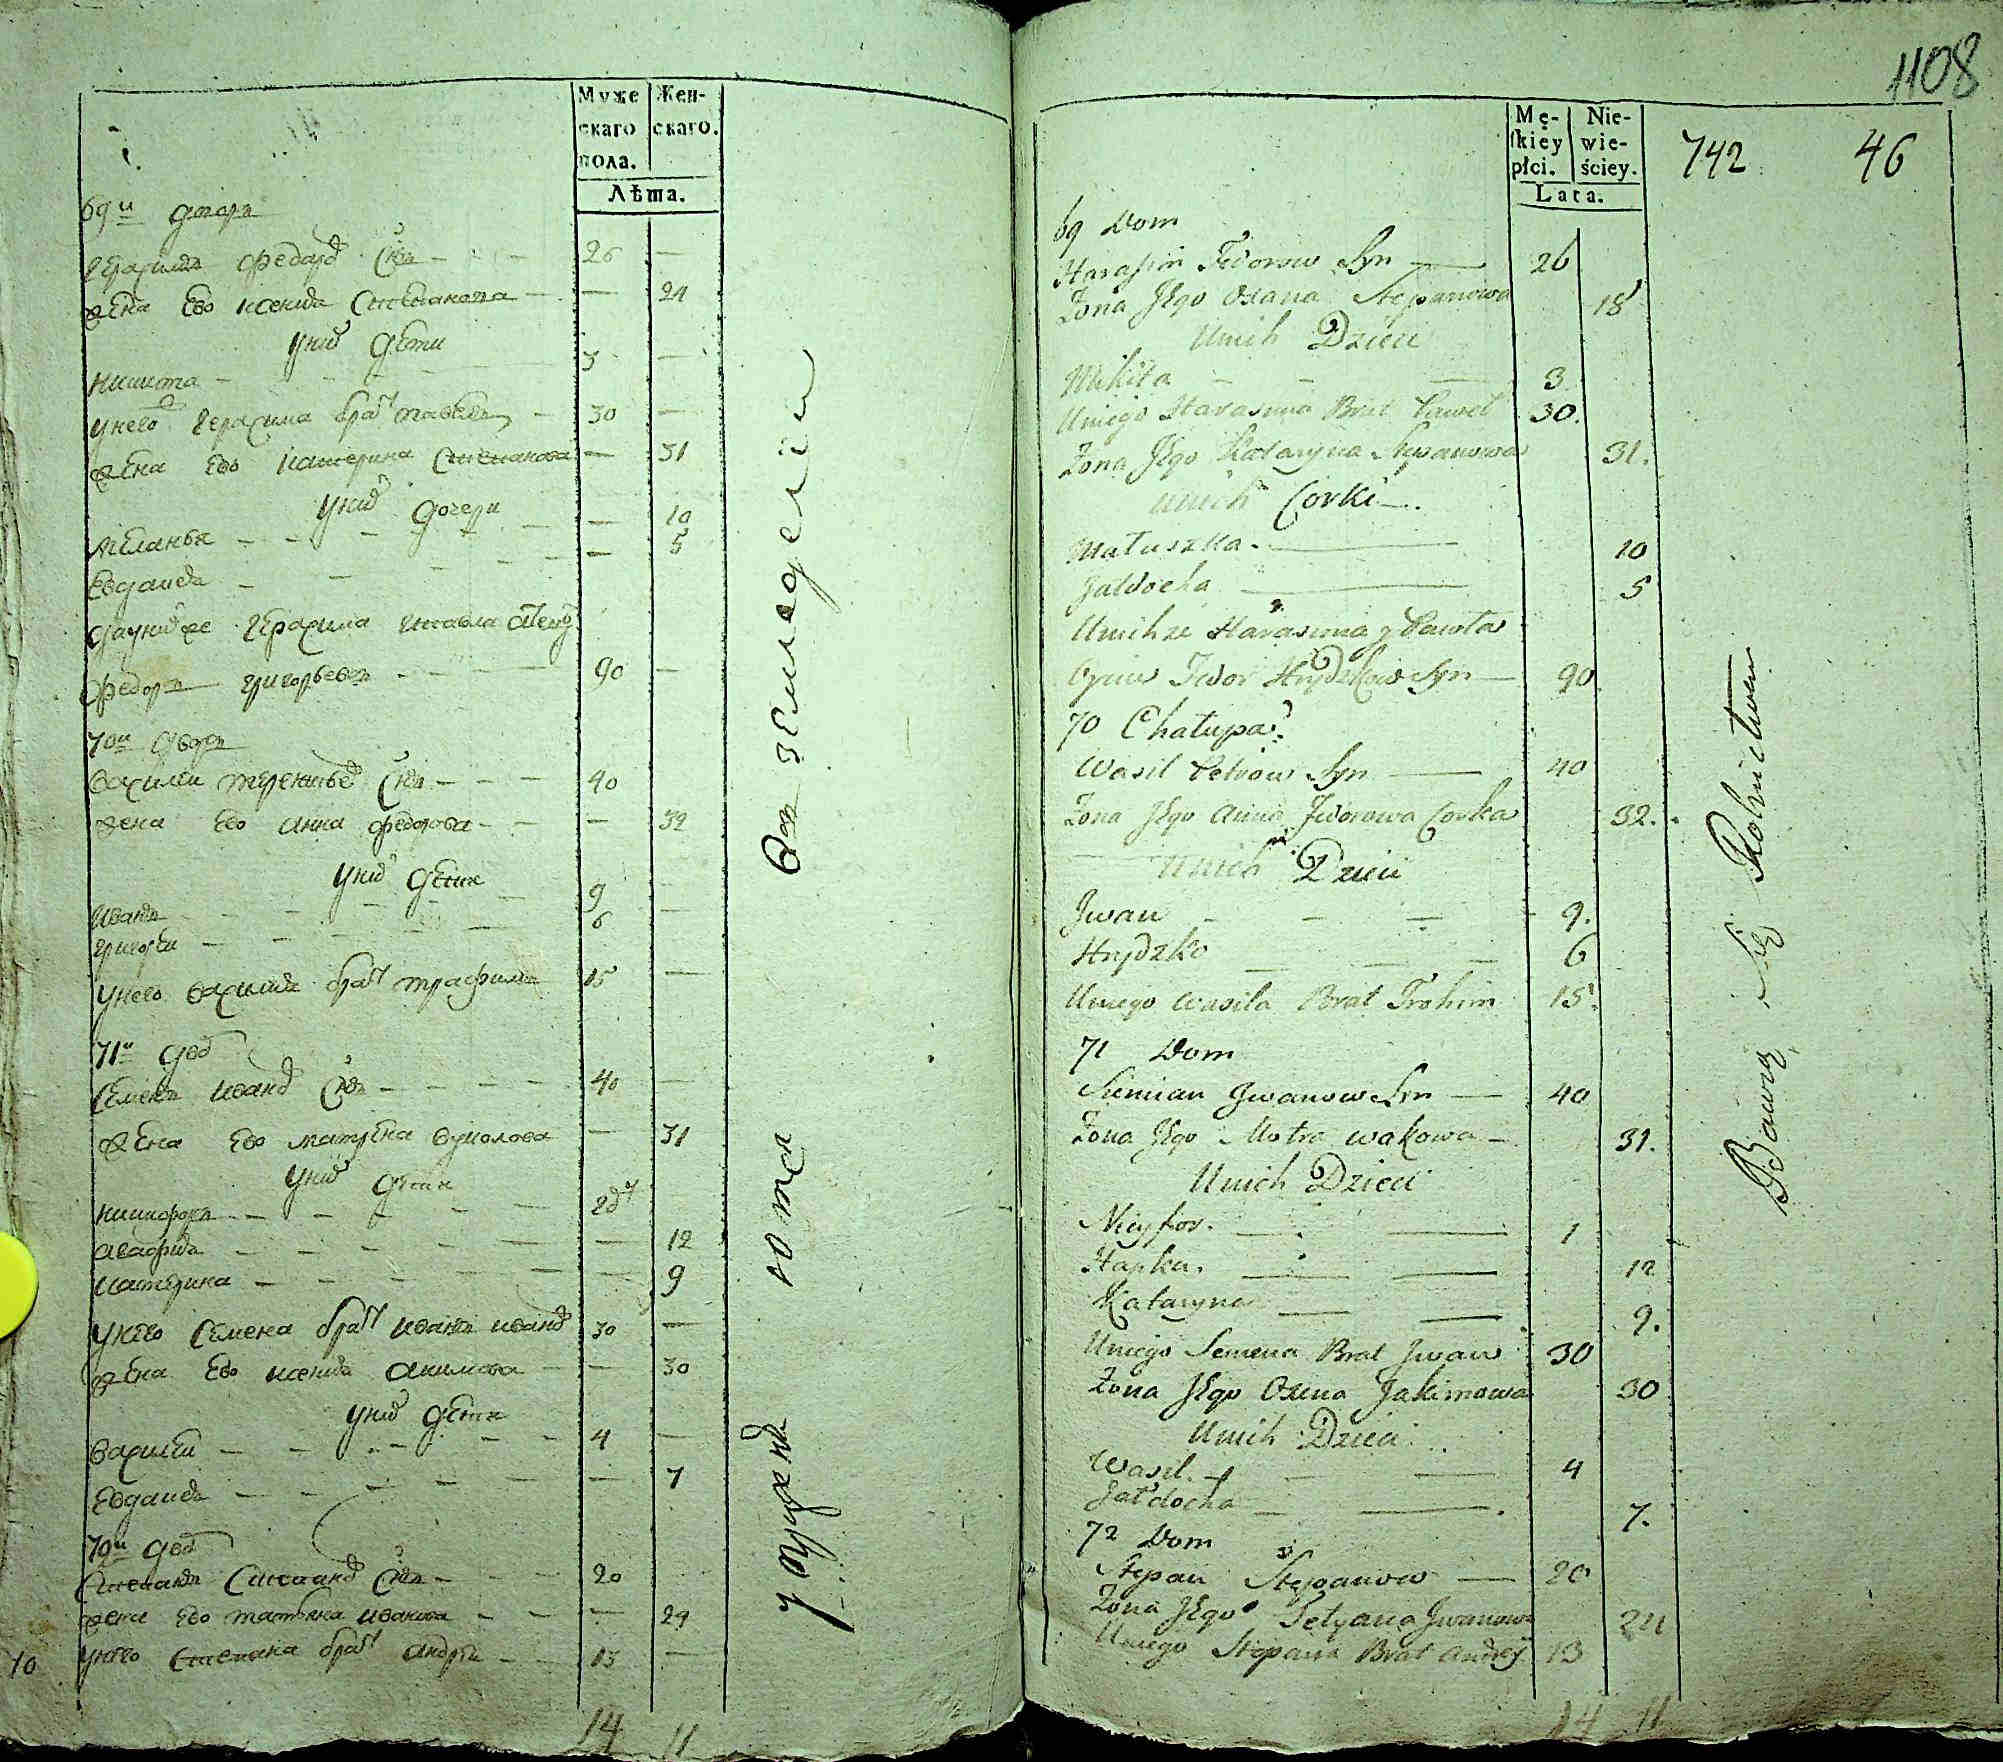 Муже
скаго
пола.
Жен-
скаго.
Лѣта.
69й дворъ
Герасимъ Федоровъ Снъ — 26 —
Жена Ево Ксенья Степанова — 24
Унихъ дети
Никита — 3 —
Унего Герасима братъ Павелъ — 30 —
Жена Ево Катерина Степанова — 31
Унихъ дочери
Меланья — 10
Евдокия — 5
Герасима Павла Отецъ
Федоръ Григорьевъ — 90 —
70й дворъ
Василей Снъ — 40
Жена Ево Анна Федорова — 32
Унихъ дети
Иванъ — 9 —
Григорей — 6
Унего Василья братъ Трафимъ 15 —
71й дво
Семенъ Ивановъ Снъ — 40 —
Жена Ево Матрена — 31
Унихъ дети
Никифоръ —
Агафья — 12
Катерина — 9
Унего Семена братъ Иванъ Ивановъ 30 —
Жена Ево Ксенья Акимова — 30
Унихъ дети
Василей — 4 —
Евдокия — 7
72й дво
Степанъ Степановъ Снъ — 20
Жена Ево Татьяна Иванова — 24
Унего Степана братъ Андрей — 13 —
10
14 11
упражняются
въ земледелии
1108
Mę-
skiey
płci.
Nie-
wie-
ściey.
Lata.
742 46
69 Dom
Harasim Fedorow Syn — 26
Żona Jego Oxana Stepanowa 18
Unich Dzieci
Mikita — 3
Uniego Harasima Brat Paweł 30.
Żona Jego Kataryna Stepanowa 31.
Unich Corki —.
Matuszka — 10
Jewdocha — 5
Unichze Harasima y Pawła
Oyciec Fedor Hrydzkow Syn — 90
70 Chałupa
Wasil Petrow Syn — 40
Żona Jego Anna Fedorowa Corka 32.
Unich Dzieci
Jwan — 9.
Hrydzko — 6
Uniego Wasila Brat Trohim 15.
71 Dom
Siemian Jwanow Syn — 40
Żona Jego Motra wakowa — 31.
Unich Dzieci
Nicyfor. — 1
Hapka. — 12
Kataryna — 9.
Uniego Semena Brat Jwan 30
Żona Jego Oxena Jakimowa 30
Unich Dzieci
Wasil. — 4
Jewdocha — 7.
72 Dom
Stepan Stepanow — 20
Żona Jego Tetyana Jwanowa 24
Uniego Stepana Brat Andrey 13
14 11
Bawią się Rolnictwem